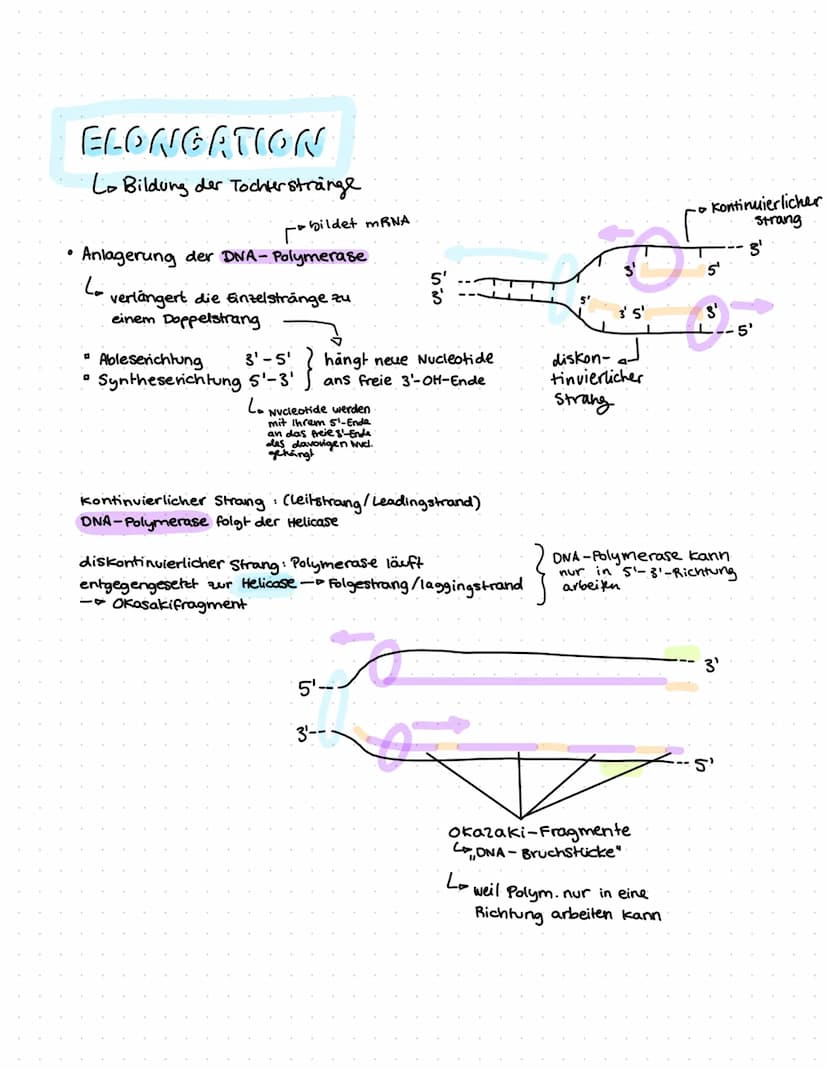 ELONGATION
↳ Bildung der Tochterstränge
bildet mRNA
• Anlagerung der DNA-Polymerase
↳ verlängert die Einzelstränge zu
einem Doppelstrang
▫ Ableserichtung 3'-5'
▫ Syntheserichtung 5'-3'
hängt neue Nucleotide
ans freie 3'-OH-Ende
↳ Nucleotide werden
mit ihrem 5'-Ende
an das freie 3'-Ende
des davorigen Nucl.
gehängt
kontinuierlicher
Strang
5'
3'
3'
5'
3'
5'
3' 5'
3'
5'
diskon-
tinuierlicher
Strang
kontinuierlicher Strang: (Leitstrang/Leadingstrand)
DNA-Polymerase folgt der Helicase
diskontinuierlicher Strang: Polymerase läuft
entgegengesetzt zur Helicase → Folgestrang/laggingstrand
→ Okasakifragment
DNA-Polymerase kann
nur in 5'-3'-Richtung
arbeiten
5'
3'
3'
5'
Okazaki-Fragmente
↳ „DNA-Bruchstücke"
↳ weil Polym. nur in eine
Richtung arbeiten kann